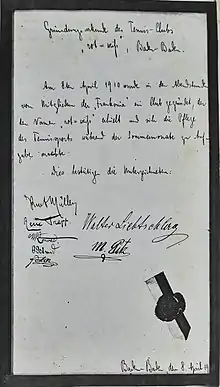 Gründungsurkunde des Tennis-Clubs
"rot-weiß", Baden-Baden.
Am 8ten April 1910 wurde in der Abendstunde
von Mitgliedern der "Franconia" ein Club gegründet, der
den Namen "rot-weiß" erhielt und sich die Pflege
des Tennissports während der Sommermonate zur Auf-
gabe machte.
Dies bestätigen die Unterzeichneten:
Kurt Müller
Walter Lichtschlag
Baden-Baden, den 8. April